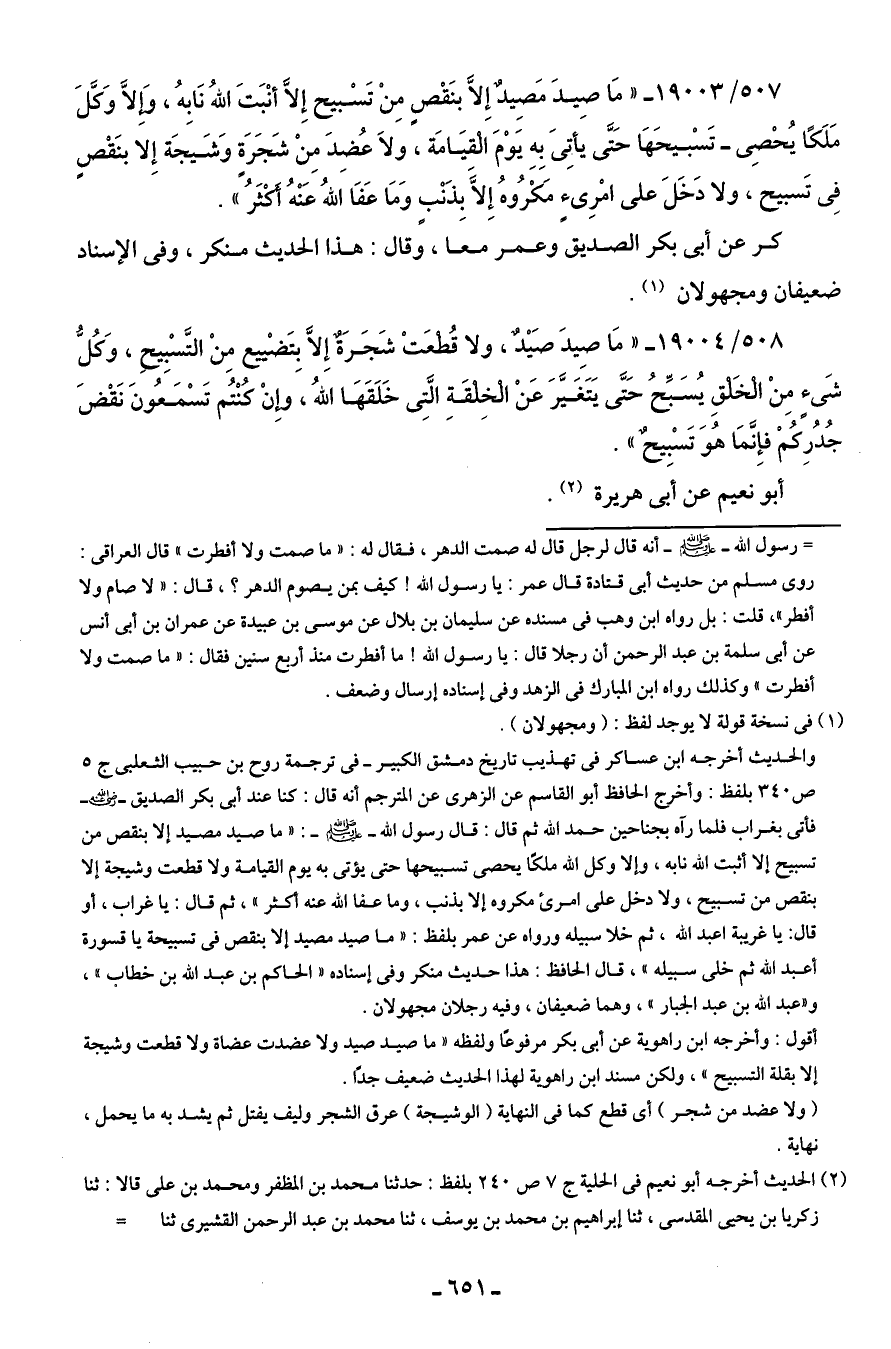 ١٩٠٠٣/٥٠٧ـ « مَا صِيـدَ مَصِيدٌ إِلاَّ بنَقْصٍ مِنْ تَسْبِيحٍ إِلاَّ أَنْبَتَ اللهُ نَابِهُ ، وَإِلاَّ وَكَّلَ
مَلَكًا يُحْصِى ـ تَسْبِيحَهَا حَتَّى يأتِىَ بِهِ يَوْمَ الْقِيَامَة ، ولاَ عُضِدَ مِنْ شَجَرَةٍ وَشَيجَة إِلا بنَقْصٍ
فِى تَسبيح ، ولا دَخَلَ على امْرِىءٍ مَكْرُوهٌ إِلاَّ بِذَنْبٍ وَمَا عَفَا اللهُ عَنْهُ أَكْثَرُ » .
كـر عن أبى بكر الصـديق وعـمـر مـعـا ، وقال : هـذا الحديث مـنكر ، وفى الإسناد
ضعيفان ومجهولان (١) .
١٩٠٠٤/٥٠٨ـ « مَا صِيدَ صَيْدٌ ، ولا قُطعَتْ شَجَرَةٌ إِلاَّ بِتَضْيِيع مِنْ التَّسْبِيحِ ، وَكُلُّ
شَىءٍ مِنْ الْخَلْقِ يُسَبِّحُ حَتَّى يَتَغَيَّرَ عَنْ الْخِلْقَةِ الَّتِى خَلَقَهَـا اللهُ ، وإِنْ كُنْتُم تَسْمَعُونَ نَقْضَ
جُدُرِكُمْ فإِنَّمَا هُوَ تَسْبِيحٌ » .
أبو نعيم عن أبى هريرة (٢) .
= رسول الله ـ ﷺ ـ أنه قال لرجل قال له صمت الدهر ، فـقال له : « ما صمت ولا أفطرت » قال العراقى :
روى مسـلم من حديث أبى قـتادة قـال عمر : يا رسـول الله ! كيف بمن يـصوم الدهر ؟ ، قـال : « لا صام ولا
أفطر»، قلت : بل رواه ابن وهب فى مسنده عن سليمان بن بلال عن موسـى بن عبيدة عن عمران بن أبى أنس
عن أبى سلمة بن عبد الرحمن أن رجلا قال : يا رسـول الله ! ما أفطرت منذ أربع سنين فقال : « ما صمت ولا
أفطرت » وكذلك رواه ابن المبارك فى الزهد وفى إسناده إرسال وضعف .
(١) فى نسخة قولة لا يوجد لفظ : ( ومجهولان ) .
والحـديث أخرجـه ابن عسـاكر فى تهـذيب تاريخ دمـشق الكبيـر ـ فى ترجـمة روح بن حـبيب الثـعلبى ج ٥
ص٣٤٠ بلفظ : وأخرج الحافظ أبو القاسم عن الزهرى عن المترجم أنه قال : كنا عند أبى بكر الصديق ـ رضي الله عنه ـ
فأتى بغـراب فلما رآه بجناحين حـمد الله ثم قال : قـال رسول الله ـ ﷺ ـ : « ما صـيد مصـيد إلا بنقص من
تسبيح إلا أثبت الله نابه ، وإلا وكل الله ملكًا يحصى تسبيحها حتى يؤتى به يوم القيامـة ولا قطعت وشيجة إلا
بنقص من تسـبيح ، ولا دخل على امـرئ مكروه إلا بذنب ، وما عـفا الله عنه أكـثر » ، ثم قـال : يا غراب ، أو
قال: يا غريبة اعبد الله ، ثم خلا سبيله ورواه عن عمر بلفظ : « مـا صيد مصيد إلا بنقص فى تسبيحة يا قسورة
أعـبد الله ثم خلى سـبيله » ، قـال الحافظ : هذا حـديث منكر وفى إسناده « الحـاكم بن عـبـد الله بن خطاب » ،
و«عبد الله بن عبد الجبار » ، وهما ضعيفان ، وفيه رجلان مجهولان .
أقول : وأخرجه ابن راهوية عن أبى بكر مرفوعًا ولفظه « ما صـيـد صيد ولا عضدت عضاة ولا قطعت وشيجة
إلا بقلة التسبيح » ، ولكن مسند ابن راهوية لهذا الحديث ضعيف جدًا .
( ولا عضد من شجـر ) أى قطع كما فى النهاية ( الوشيـجة ) عرق الشجر وليف يفتل ثم يشـد به ما يحمل ،
نهاية .
(٢) الحديث أخرجـه أبو نعيم فى الحلية ج ٧ ص ٢٤٠ بلفظ : حدثنا مـحمد بن المظفر ومحـمد بن على قالا : ثنا
زكريا بن يحيى المقدسى ، ثنا إبراهيم بن محمد بن يوسف ، ثنا محمد بن عبد الرحمن القشيرى ثنا =
ـ ٦٥١ ـ